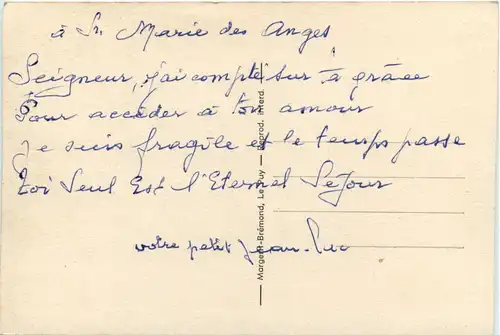 à Sr Marie des Anges
Seigneur, j'ai compté sur ta grâce
Pour accéder à ton amour
Je suis fragile et le temps passe
Toi Seul Est l'Eternel Séjour
votre petit Jean-Luc
Margerit-Brémond, Le Puy — Reprod. interd.